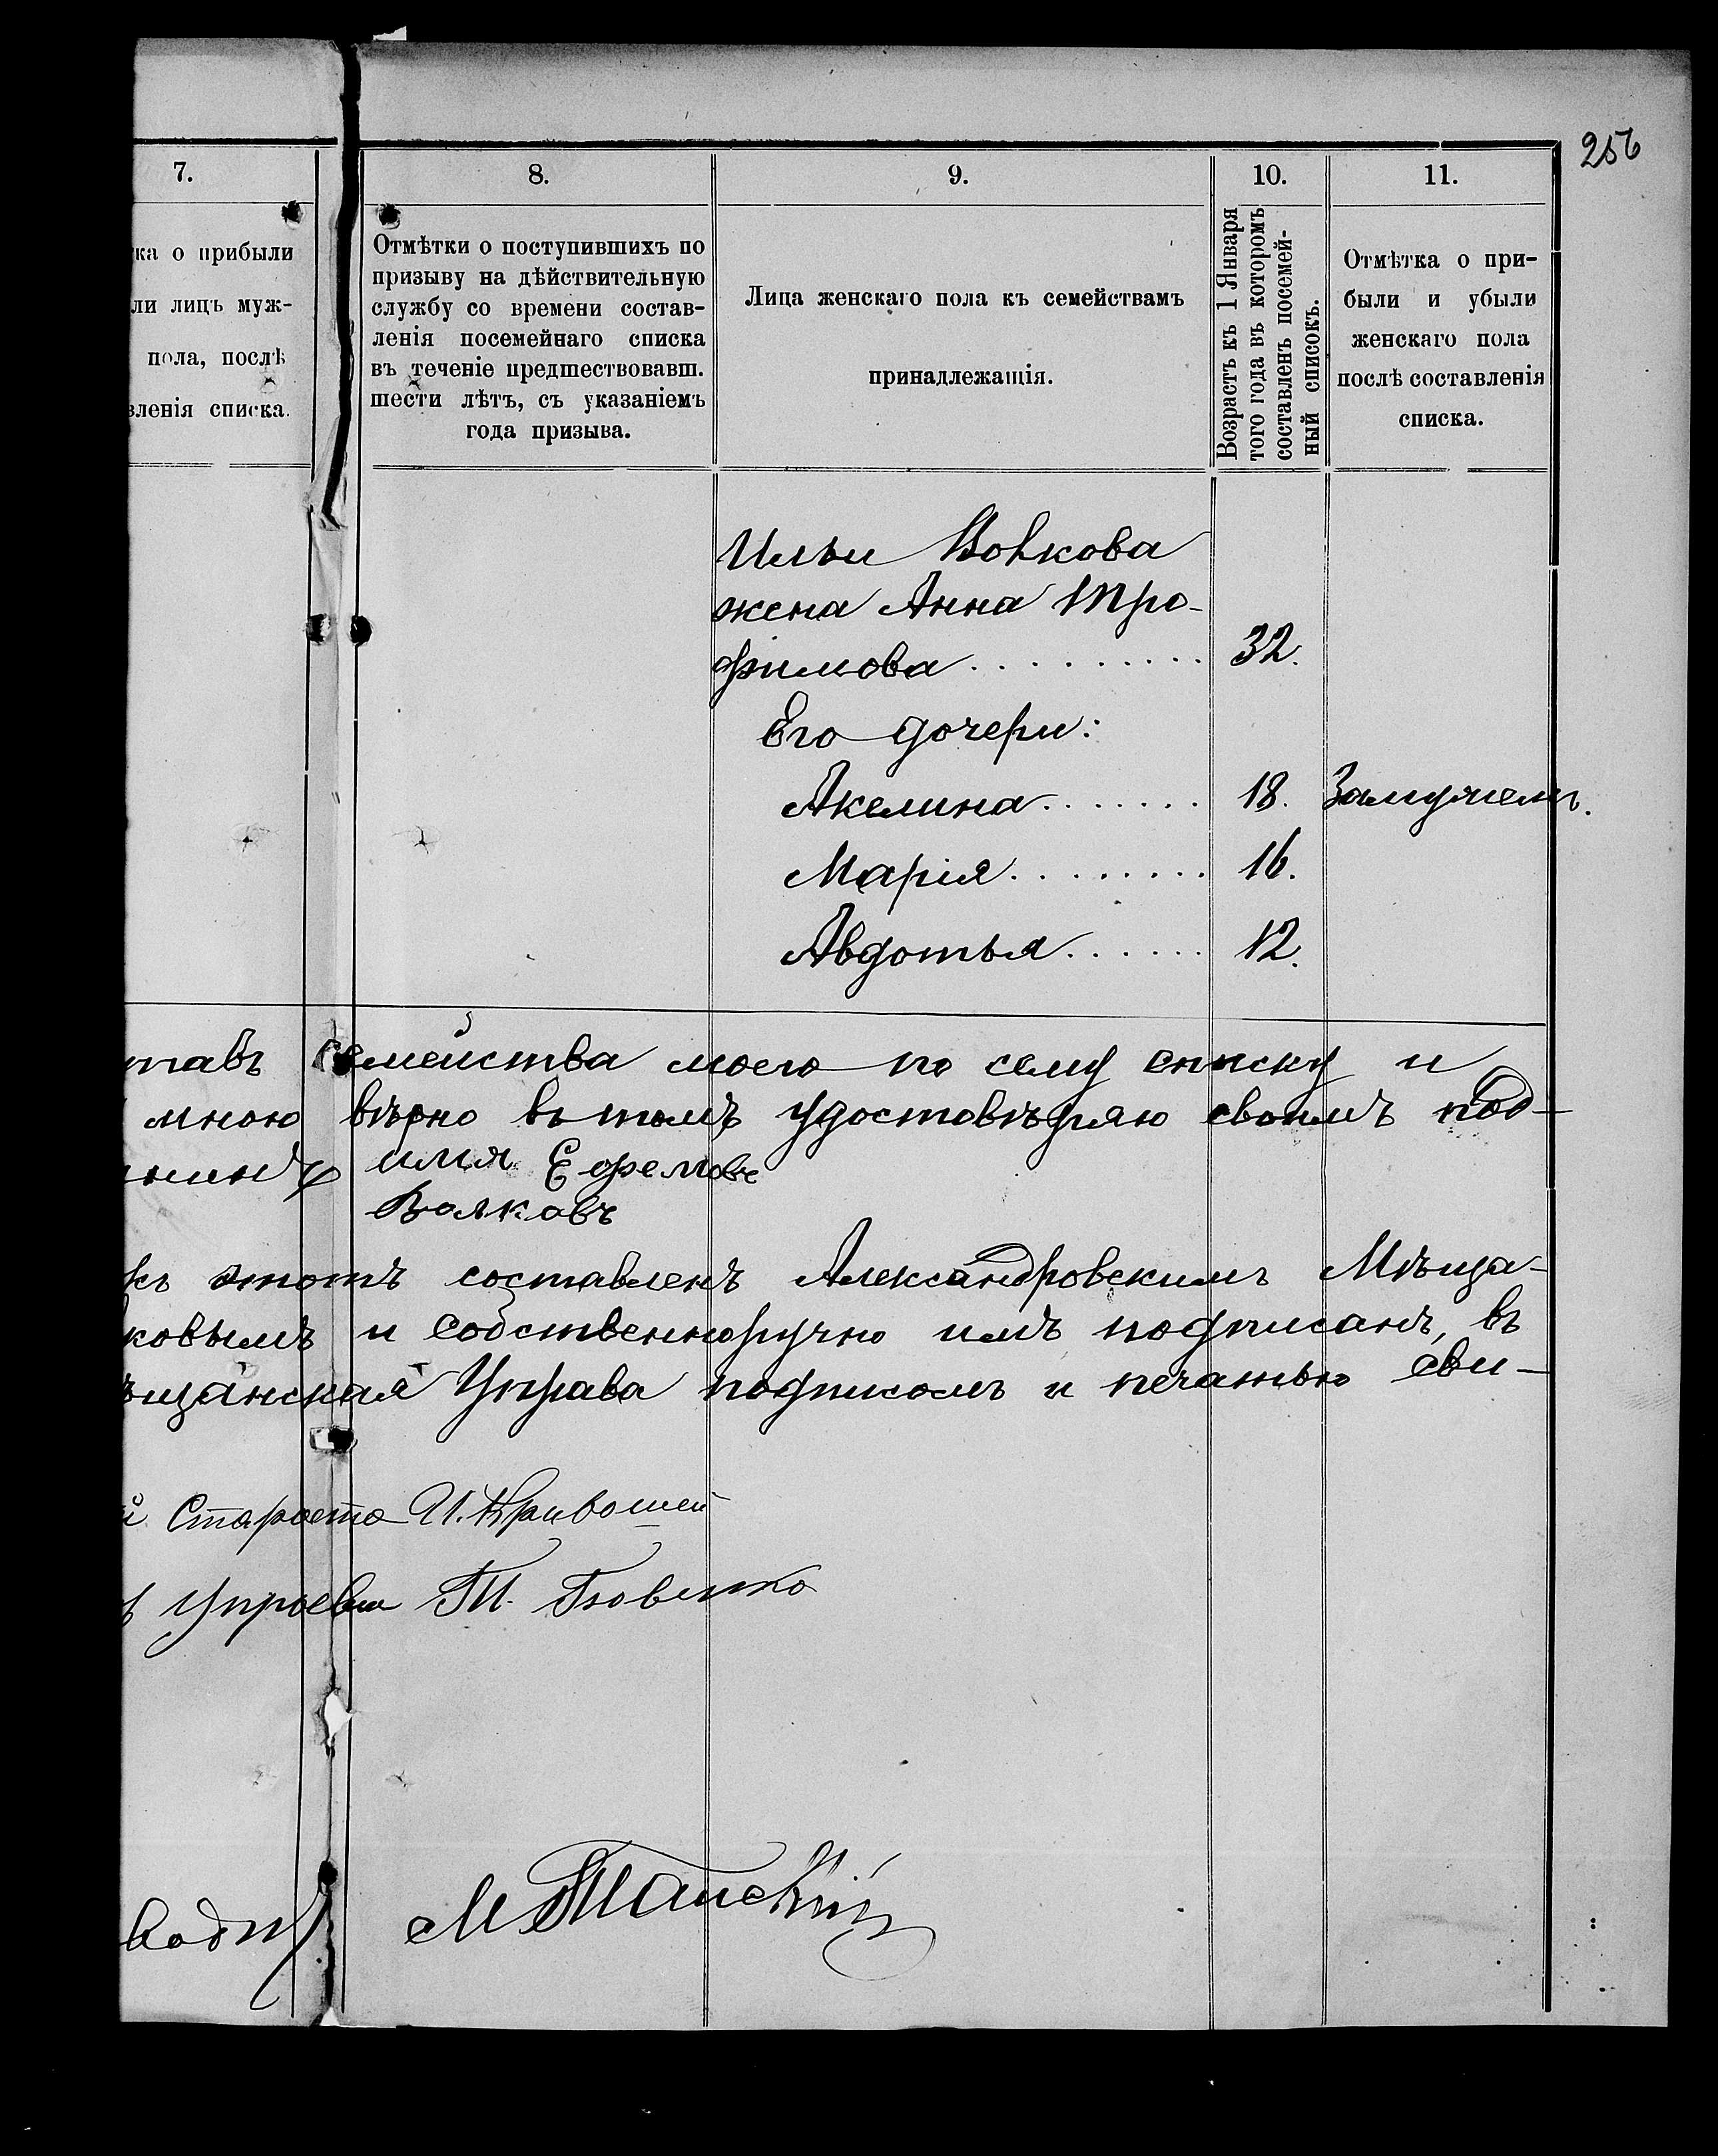 256
7.
8.
9.
10.
11.
ка о прибыли
ли лицъ муж-
пола, послѣ
вленія списка.
Отмѣтки о поступившихъ по
призыву на дѣйствительную
службу со времени состав-
ленія посемейнаго списка
въ теченіе предшествовавш.
шести лѣтъ, съ указаніемъ
года призыва.
Лица женскаго пола къ семействамъ
принадлежащія.
Возрастъ къ 1 Января
того года въ которомъ
составленъ посемей-
ный списокъ.
Отмѣтка о при-
были и убыли
женскаго пола
послѣ составленія
списка.
Ильи Волкова
жена Анна Тро-
фимова . . . . . . . . . . 32.
Его дочери:
Акелина . . . . . . . 18. Замужемъ.
Марія . . . . . . . . . 16.
Авдотья . . . . . . 12.
тавъ семейства моего по сему списку и
мною вѣрно въ томъ удостовѣряю своимъ под-
илия Ефремовъ
Волковъ
къ этотъ составленъ Александровскимъ Мѣща-
ковымъ и собственноручно имъ подписанъ, въ
ѣщанская Управа подписомъ и печатью сви-
й Староста И. Кривошей
Управы